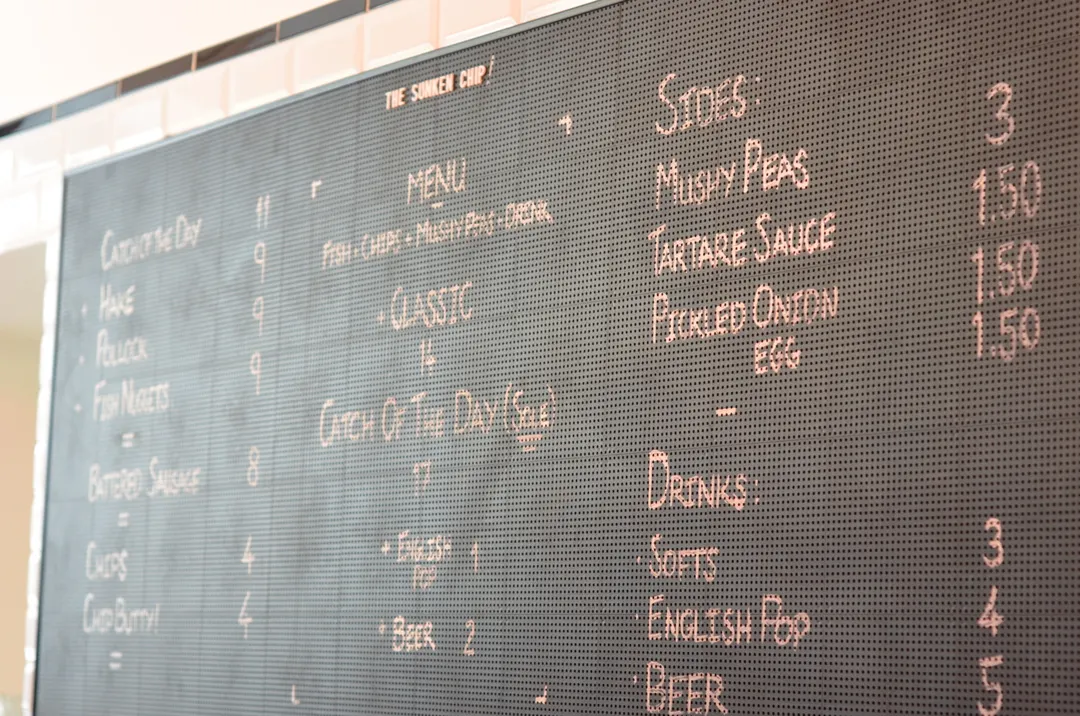 THE SUNKEN CHIP!
CATCH OF THE DAY 11
HAKE 9
POLLOCK 9
FISH NUGGETS 9
=
BATTERED SAUSAGE 8
=
CHIPS 4
CHIP BUTTY! 4
=
MENU
FISH + CHIPS + MUSHY PEAS + DRINK
• CLASSIC
14
CATCH OF THE DAY (SOLE)
17
+ ENGLISH POP 1
+ BEER 2
SIDES:
MUSHY PEAS 3
TARTARE SAUCE 1.50
PICKLED ONION 1.50
EGG 1.50
–
DRINKS:
• SOFTS 3
• ENGLISH POP 4
• BEER 5